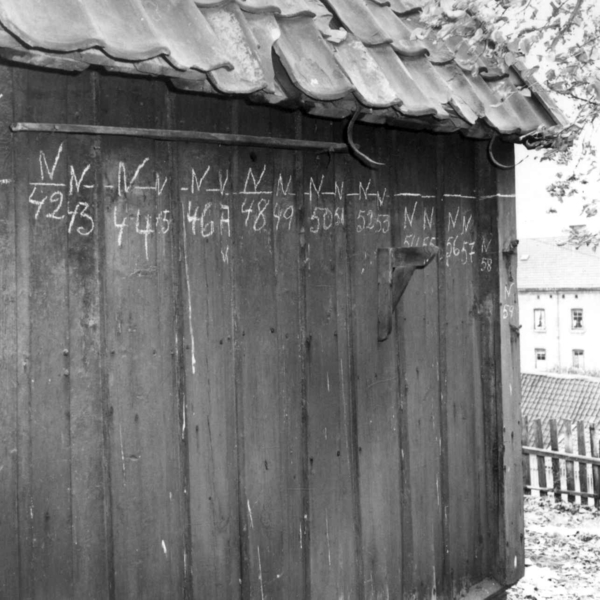 N N N N N V. N N N N N N
42 43 44 45 46 A 48 49 50 51 52 53
V
N N N N
54 55 56 57
N
58
N
59